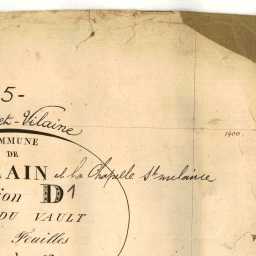 5-
et-Vilaine
1400.
COMMUNE
DE
LAIN et la Chapelle St melaine
ion D1
DU VAULT
Feuilles